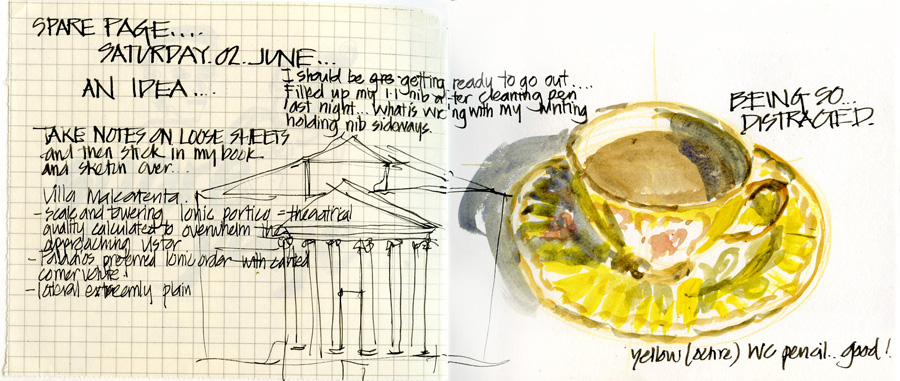 SPARE PAGE....
SATURDAY.02.JUNE...
AN IDEA....
I should be getting ready to go out....
Filled up my 1.1 nib after cleaning pen
last night... what is wrong with my writing
holding nib sideways.
TAKE NOTES ON LOOSE SHEETS
and then stick in my book
and sketch over...
Villa Malcontenta.
- scale and towering Ionic portico = theatrical
quality calculated to overwhelm the
approaching vistor
- Palladios preferred Ionic order - with canted
corner volute!
- lateral extreamly plain
BEING SO...
DISTRACTED.
yellow (ochre) WC pencil... good!